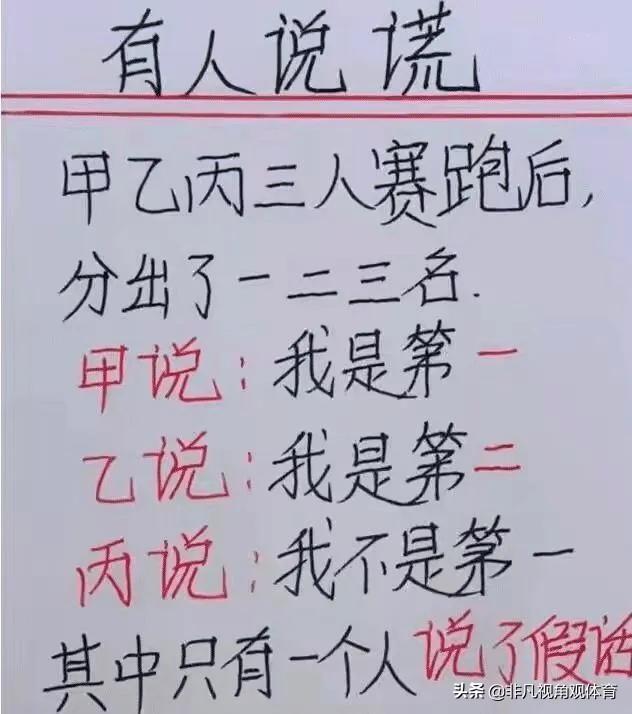 有人说谎
甲乙丙三人赛跑后,
分出了一二三名.
甲说:我是第一
乙说:我是第二
丙说:我不是第一
其中只有一个人说了假话
头条 @非凡视角观体育